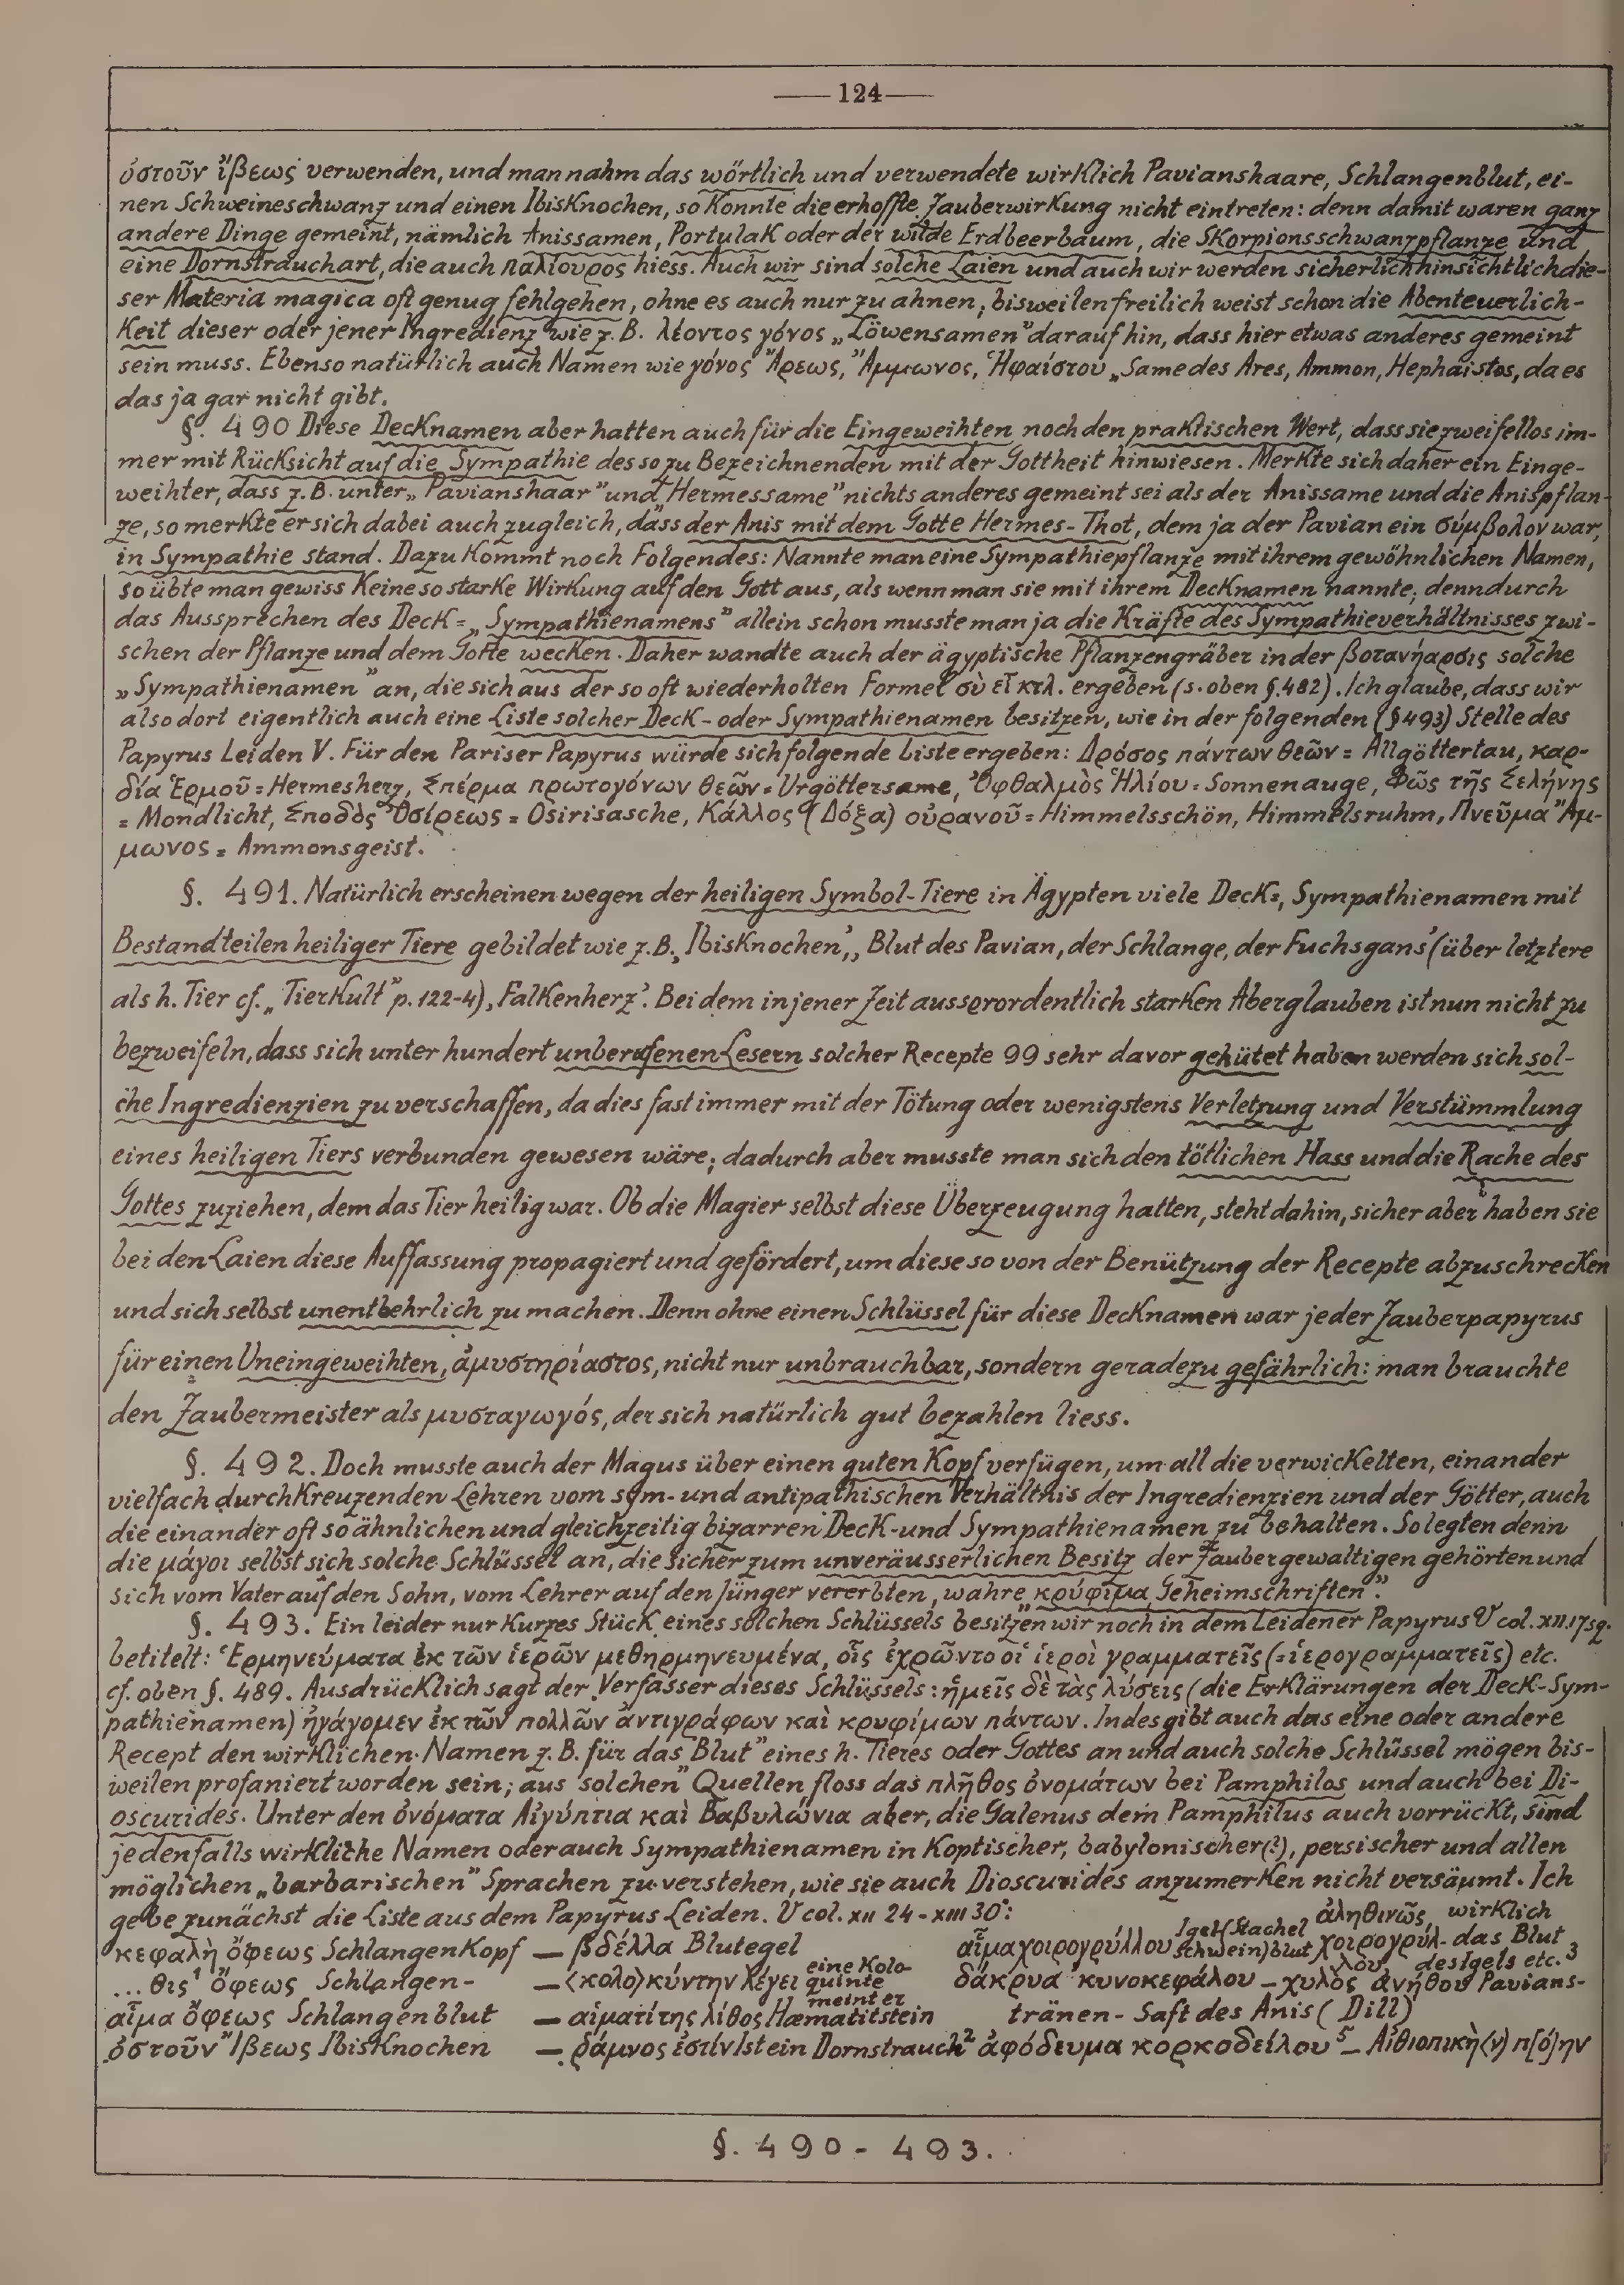 — 124 —
ὀστοῦν ἴβεως verwenden, und man nahm das wörtlich und verwendete wirklich Pavianshaare, Schlangenblut, ei-
nen Schweineschwanz und einen Ibisknochen, so konnte die erhoffte Zauberwirkung nicht eintreten: denn damit waren ganz
andere Dinge gemeint, nämlich Anissamen, Portulak oder der wilde Erdbeerbaum, die Skorpionsschwanzpflanze und
eine Dornstrauchart, die auch παλίουρος hiess. Auch wir sind solche Laien und auch wir werden sicherlich hinsichtlich die-
ser Materia magica oft genug fehlgehen, ohne es auch nur zu ahnen; bisweilen freilich weist schon die Abenteuerlich-
keit dieser oder jener Ingredienz wie z. B. λέοντος γόνος „Löwensamen" darauf hin, dass hier etwas anderes gemeint
sein muss. Ebenso natürlich auch Namen wie γόνος Ἄρεως, Ἄμμωνος, Ἡφαίστου „Same des Ares, Ammon, Hephaistos, da es
das ja gar nicht gibt.
§. 490 Diese Decknamen aber hatten auch für die Eingeweihten noch den praktischen Wert, dass sie zweifellos im-
mer mit Rücksicht auf die Sympathie des so zu Bezeichnenden mit der Gottheit hinwiesen. Merkte sich daher ein Einge-
weihter, dass z. B. unter „Pavianshaar" und „Hermessame" nichts anderes gemeint sei als der Anissame und die Anispflan-
ze, so merkte er sich dabei auch zugleich, dass der Anis mit dem Gotte Hermes-Thot, dem ja der Pavian ein σύμβολον war,
in Sympathie stand. Dazu kommt noch Folgendes: Nannte man eine Sympathiepflanze mit ihrem gewöhnlichen Namen,
so übte man gewiss keine so starke Wirkung auf den Gott aus, als wenn man sie mit ihrem Decknamen nannte; denn durch
das Aussprechen des Deck= „Sympathienamens" allein schon musste man ja die Kräfte des Sympathieverhältnisses zwi-
schen der Pflanze und dem Gotte wecken. Daher wandte auch der ägyptische Pflanzengräber in der βοτανήαρσις solche
„Sympathienamen" an, die sich aus der so oft wiederholten Formel σὺ εἶ κτλ. ergeben (s. oben §. 482). Ich glaube, dass wir
also dort eigentlich auch eine Liste solcher Deck- oder Sympathienamen besitzen, wie in der folgenden (§ 493) Stelle des
Papyrus Leiden V. Für den Pariser Papyrus würde sich folgende Liste ergeben: Δρόσος πάντων θεῶν = Allgöttertau, καρ-
δία Ἑρμοῦ = Hermesherz, Σπέρμα πρωτογόνων θεῶν = Urgöttersame, Ὀφθαλμὸς Ἡλίου = Sonnenauge, Φῶς τῆς Σελήνης
= Mondlicht, Σποδὸς Ὀσίρεως = Osirisasche, Κάλλος (Δόξα) οὐρανοῦ = Himmelsschön, Himmelsruhm, Πνεῦμα Ἄμ-
μωνος = Ammonsgeist.
§. 491. Natürlich erscheinen wegen der heiligen Symbol-Tiere in Ägypten viele Deck=, Sympathienamen mit
Bestandteilen heiliger Tiere gebildet wie z. B. ‚Ibisknochen', ‚Blut des Pavian, der Schlange, der Fuchsgans' (über letztere
als h. Tier cf. „Tierkult" p. 122-4), ‚Falkenherz'. Bei dem in jener Zeit ausserordentlich starken Aberglauben ist nun nicht zu
bezweifeln, dass sich unter hundert unberufenen Lesern solcher Recepte 99 sehr davor gehütet haben werden sich sol-
che Ingredienzien zu verschaffen, da dies fast immer mit der Tötung oder wenigstens Verletzung und Verstümmlung
eines heiligen Tiers verbunden gewesen wäre; dadurch aber musste man sich den tötlichen Hass und die Rache des
Gottes zuziehen, dem das Tier heilig war. Ob die Magier selbst diese Überzeugung hatten, steht dahin, sicher aber haben sie
bei den Laien diese Auffassung propagiert und gefördert, um diese so von der Benützung der Recepte abzuschrecken
und sich selbst unentbehrlich zu machen. Denn ohne einen Schlüssel für diese Decknamen war jeder Zauberpapyrus
für einen Uneingeweihten, ἀμυστηρίαστος, nicht nur unbrauchbar, sondern geradezu gefährlich: man brauchte
den Zaubermeister als μυσταγωγός, der sich natürlich gut bezahlen liess.
§. 492. Doch musste auch der Magus über einen guten Kopf verfügen, um all die verwickelten, einander
vielfach durchkreuzenden Lehren vom sym- und antipathischen Verhältnis der Ingredienzien und der Götter, auch
die einander oft so ähnlichen und gleichzeitig bizarren Deck- und Sympathienamen zu behalten. So legten denn
die μάγοι selbst sich solche Schlüssel an, die sicher zum unveräusserlichen Besitz der Zaubergewaltigen gehörten und
sich vom Vater auf den Sohn, vom Lehrer auf den Jünger vererbten, wahre „κρύφιμα Geheimschriften".
§. 493. Ein leider nur kurzes Stück eines solchen Schlüssels besitzen wir noch in dem Leidener Papyrus V col. XII. 17 sq.
betitelt: Ἑρμηνεύματα ἐκ τῶν ἱερῶν μεθηρμηνευμένα, οἷς ἐχρῶντο οἱ ἱεροὶ γραμματεῖς (=ἱερογραμματεῖς) etc.
cf. oben §. 489. Ausdrücklich sagt der Verfasser dieses Schlüssels: ἡμεῖς δὲ τὰς λύσεις (die Erklärungen der Deck-Sym-
pathienamen) ἠγάγομεν ἐκ τῶν πολλῶν ἀντιγράφων καὶ κρυφίμων πάντων. Indes gibt auch das eine oder andere
Recept den wirklichen Namen z. B. für das „Blut" eines h. Tieres oder Gottes an und auch solche Schlüssel mögen bis-
weilen profaniert worden sein; aus solchen Quellen floss das πλῆθος ὀνομάτων bei Pamphilos und auch bei Di-
oscurides. Unter den ὀνόματα Αἰγύπτια καὶ Βαβυλώνια aber, die Galenus dem Pamphilus auch vorrückt, sind
jedenfalls wirkliche Namen oder auch Sympathienamen in koptischer, babylonischer(?), persischer und allen
möglichen „barbarischen" Sprachen zu verstehen, wie sie auch Dioscurides anzumerken nicht versäumt. Ich
gebe zunächst die Liste aus dem Papyrus Leiden. V col. XII 24 - XIII 30:
κεφαλὴ ὄφεως Schlangenkopf — βδέλλα Blutegel
...θις¹ ὄφεως Schlangen- — ⟨κολο⟩κύντην λέγει eine Kolo-
quinte
meint er
αἷμα ὄφεως Schlangenblut — αἱματίτης λίθος Hæmatitstein
ὀστοῦν Ἴβεως Ibisknochen — ῥάμνος ἐστίν Ist ein Dornstrauch²
αἷμα χοιρογρύλλου Igel (Stachel
schwein) blut ἀληθινῶς wirklich
χοιρογρύλ- das Blut
λου des Igels etc. ³
δάκρυα κυνοκεφάλου — χυλὸς ἀνήθου Pavians-
tränen - Saft des Anis (Dill)
ἀφόδευμα κορκοδείλου⁵ — Αἰθιοπικὴ⟨ν⟩ π[ό]ην
§. 490 - 493.